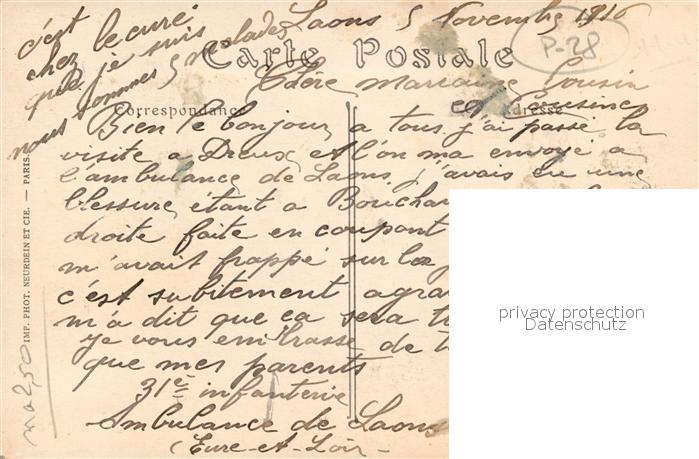 c'est
chez le curé
que je suis
nous sommes 5 malades
Laons 5 Novembre 1916
P-28
Carte Postale
Chère marraine Cousin
et Cousine
Correspondance
Adresse
Bien le bonjour a tous j'ai passé la
visite a Dreux et l'on ma envoyé a
l'ambulance de Laons j'avais eu une
blessure étant a
droite faite en coupant
m'avait frappé sur la
c'est subitement
m'a dit que ca sera
je vous embrasse de
que mes parents
31e infanterie
Ambulance de Laons
(Eure-et-Loir-
IMP. PHOT. NEURDEIN ET CIE. — PARIS.
ma 2,50
privacy protection
Datenschutz